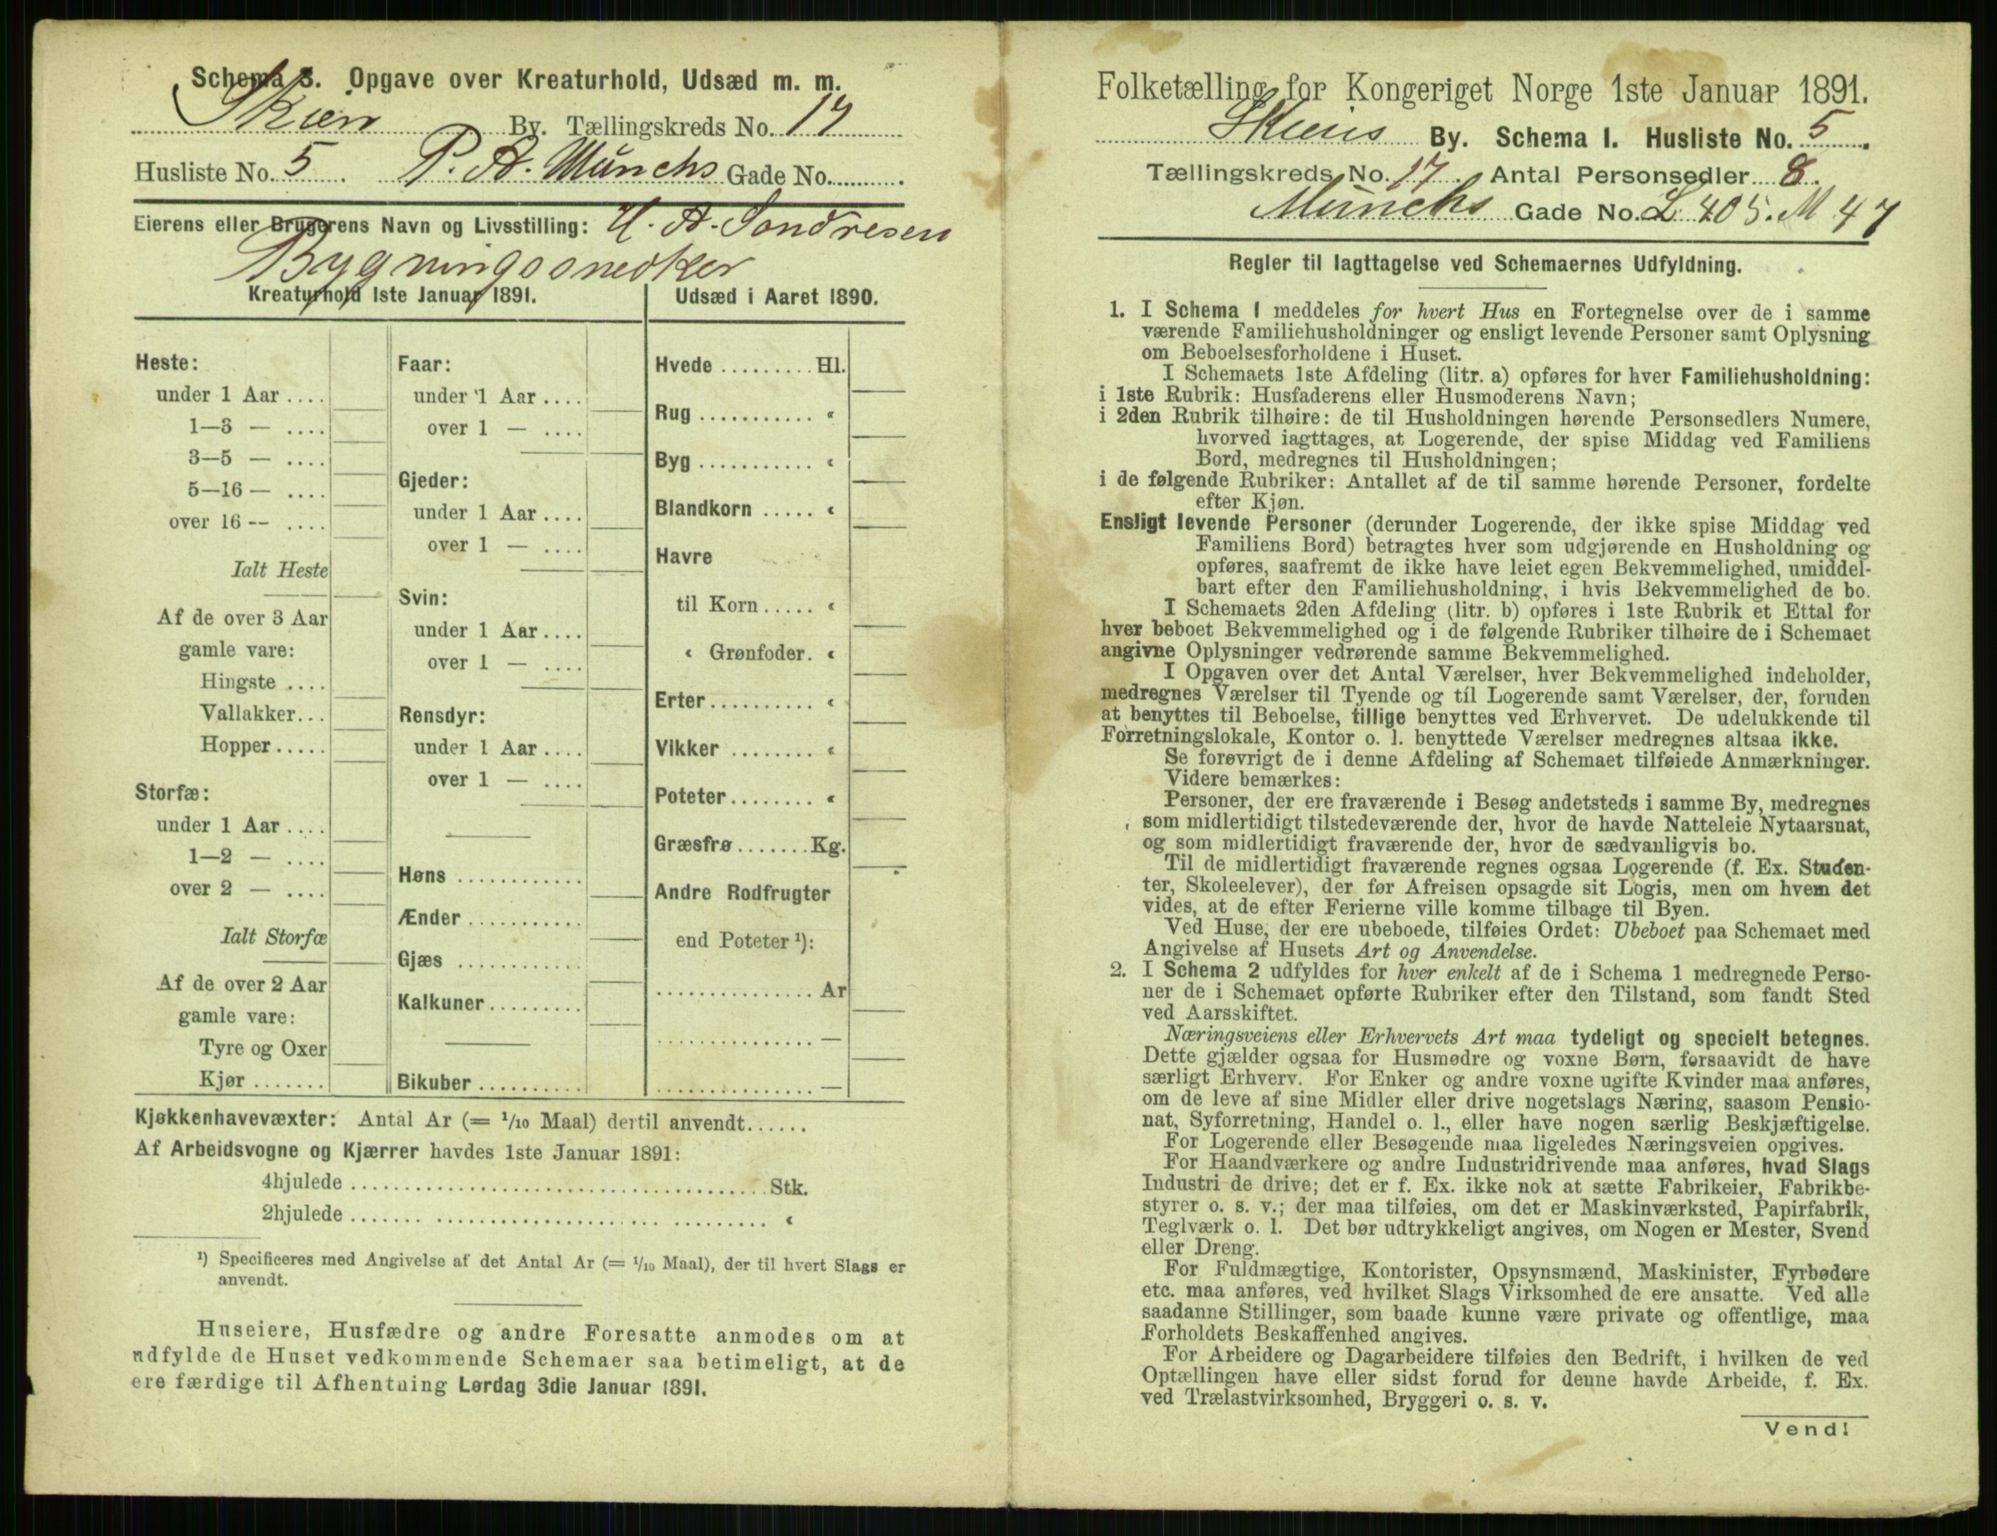 Schema 3. Opgave over Kreaturhold, Udsæd m. m.
Skien By. Tællingskreds No. 17
Husliste No. 5 P. A. Munchs Gade No.
Eierens eller Brugerens Navn og Livsstilling: H. A. Sondresen
Bygningssnedker
Kreaturhold 1ste Januar 1891.
Heste:
under 1 Aar ....
1—3 — ....
3—5 — ....
5—16 — ....
over 16 — ....
Ialt Heste
Af de over 3 Aar
gamle vare:
Hingste ....
Vallakker...
Hopper.....
Storfæ:
under 1 Aar ....
1—2 — ....
over 2 — ....
Ialt Storfæ
Af de over 2 Aar
gamle vare:
Tyre og Oxer
Kjør .......
Faar:
under 1 Aar ....
over 1 — ....
Gjeder:
under 1 Aar ....
over 1 — ....
Svin:
under 1 Aar ....
over 1 — ....
Rensdyr:
under 1 Aar ....
over 1 — ....
Høns ............
Ænder ...........
Gjæs ............
Kalkuner.........
Bikuber ..........
Udsæd i Aaret 1890.
Hvede ......... Hl.
Rug ........... «
Byg ........... «
Blandkorn ..... «
Havre
til Korn ..... «
« Grønfoder. «
Erter.......... «
Vikker ........ «
Poteter........ «
Græsfrø ....... Kg.
Andre Rodfrugter
end Poteter ¹):
............... Ar
............... —
............... —
Kjøkkenhavevæxter: Antal Ar (= 1/10 Maal) dertil anvendt......
Af Arbeidsvogne og Kjærrer havdes 1ste Januar 1891:
4hjulede ........................................ Stk.
2hjulede ........................................ «
¹) Specificeres med Angivelse af det Antal Ar (= 1/10 Maal), der til hvert Slags er
anvendt.
Huseiere, Husfædre og andre Foresatte anmodes om at
udfylde de Huset vedkommende Schemaer saa betimeligt, at de
ere færdige til Afhentning Lørdag 3die Januar 1891.
Folketælling for Kongeriget Norge 1ste Januar 1891.
Skiens By. Schema I. Husliste No. 5
Tællingskreds No. 17. Antal Personsedler 8.
Munchs Gade No. L 405. M 47
Regler til Iagttagelse ved Schemaernes Udfyldning.
1. I Schema I meddeles for hvert Hus en Fortegnelse over de i samme
værende Familiehusholdninger og ensligt levende Personer samt Oplysning
om Beboelsesforholdene i Huset.
I Schemaets 1ste Afdeling (litr. a) opføres for hver Familiehusholdning:
i 1ste Rubrik: Husfaderens eller Husmoderens Navn;
i 2den Rubrik tilhøire: de til Husholdningen hørende Personsedlers Numere,
hvorved iagttages, at Logerende, der spise Middag ved Familiens
Bord, medregnes til Husholdningen;
i de følgende Rubriker: Antallet af de til samme hørende Personer, fordelte
efter Kjøn.
Ensligt levende Personer (derunder Logerende, der ikke spise Middag ved
Familiens Bord) betragtes hver som udgjørende en Husholdning og
opføres, saafremt de ikke have leiet egen Bekvemmelighed, umiddel-
bart efter den Familiehusholdning, i hvis Bekvemmelighed de bo.
I Schemaets 2den Afdeling (litr. b) opføres i 1ste Rubrik et Ettal for
hver beboet Bekvemmelighed og i de følgende Rubriker tilhøire de i Schemaet
angivne Oplysninger vedrørende samme Bekvemmelighed.
I Opgaven over det Antal Værelser, hver Bekvemmelighed indeholder,
medregnes Værelser til Tyende og til Logerende samt Værelser, der, foruden
at benyttes til Beboelse, tillige benyttes ved Erhvervet. De udelukkende til
Forretningslokale, Kontor o. l. benyttede Værelser medregnes altsaa ikke.
Se forøvrigt de i denne Afdeling af Schemaet tilføiede Anmærkninger.
Videre bemærkes:
Personer, der ere fraværende i Besøg andetsteds i samme By, medregnes
som midlertidigt tilstedeværende der, hvor de havde Natteleie Nytaarsnat,
og som midlertidigt fraværende der, hvor de sædvanligvis bo.
Til de midlertidigt fraværende regnes ogsaa Logerende (f. Ex. Studen-
ter, Skoleelever), der før Afreisen opsagde sit Logis, men om hvem det
vides, at de efter Ferierne ville komme tilbage til Byen.
Ved Huse, der ere ubeboede, tilføies Ordet: Ubeboet paa Schemaet med
Angivelse af Husets Art og Anvendelse.
2. I Schema 2 udfyldes for hver enkelt af de i Schema 1 medregnede Perso-
ner de i Schemaet opførte Rubriker efter den Tilstand, som fandt Sted
ved Aarsskiftet.
Næringsveiens eller Erhvervets Art maa tydeligt og specielt betegnes.
Dette gjælder ogsaa for Husmødre og voxne Børn, forsaavidt de have
særligt Erhverv. For Enker og andre voxne ugifte Kvinder maa anføres,
om de leve af sine Midler eller drive nogetslags Næring, saasom Pensio-
nat, Syforretning, Handel o. l., eller have nogen særlig Beskjæftigelse.
For Logerende eller Besøgende maa ligeledes Næringsveien opgives.
For Haandværkere og andre Industridrivende maa anføres, hvad Slags
Industri de drive; det er f. Ex. ikke nok at sætte Fabrikeier, Fabrikbe-
styrer o. s. v.; der maa tilføies, om det er Maskinværksted, Papirfabrik,
Teglværk o. l. Det bør udtrykkeligt angives, om Nogen er Mester, Svend
eller Dreng.
For Fuldmægtige, Kontorister, Opsynsmænd, Maskinister, Fyrbødere
etc. maa anføres, ved hvilket Slags Virksomhed de ere ansatte. Ved alle
saadanne Stillinger, som baade kunne være private og offentlige, maa
Forholdets Beskaffenhed angives.
For Arbeidere og Dagarbeidere tilføies den Bedrift, i hvilken de ved
Optællingen have eller sidst forud for denne havde Arbeide, f. Ex.
ved Trælastvirksomhed, Bryggeri o. s. v.
Vend!